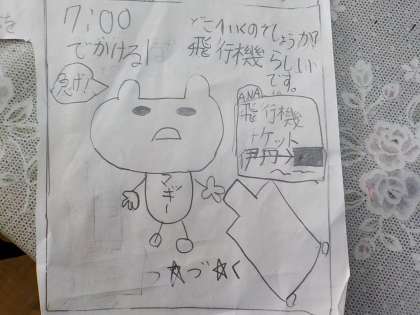 7:00
でかける!
どこへいくのでしょうか?
飛行機らしい
です。
急げ!
ANA
飛行機
チケット
伊丹→
マギー
つ☆づ☆く